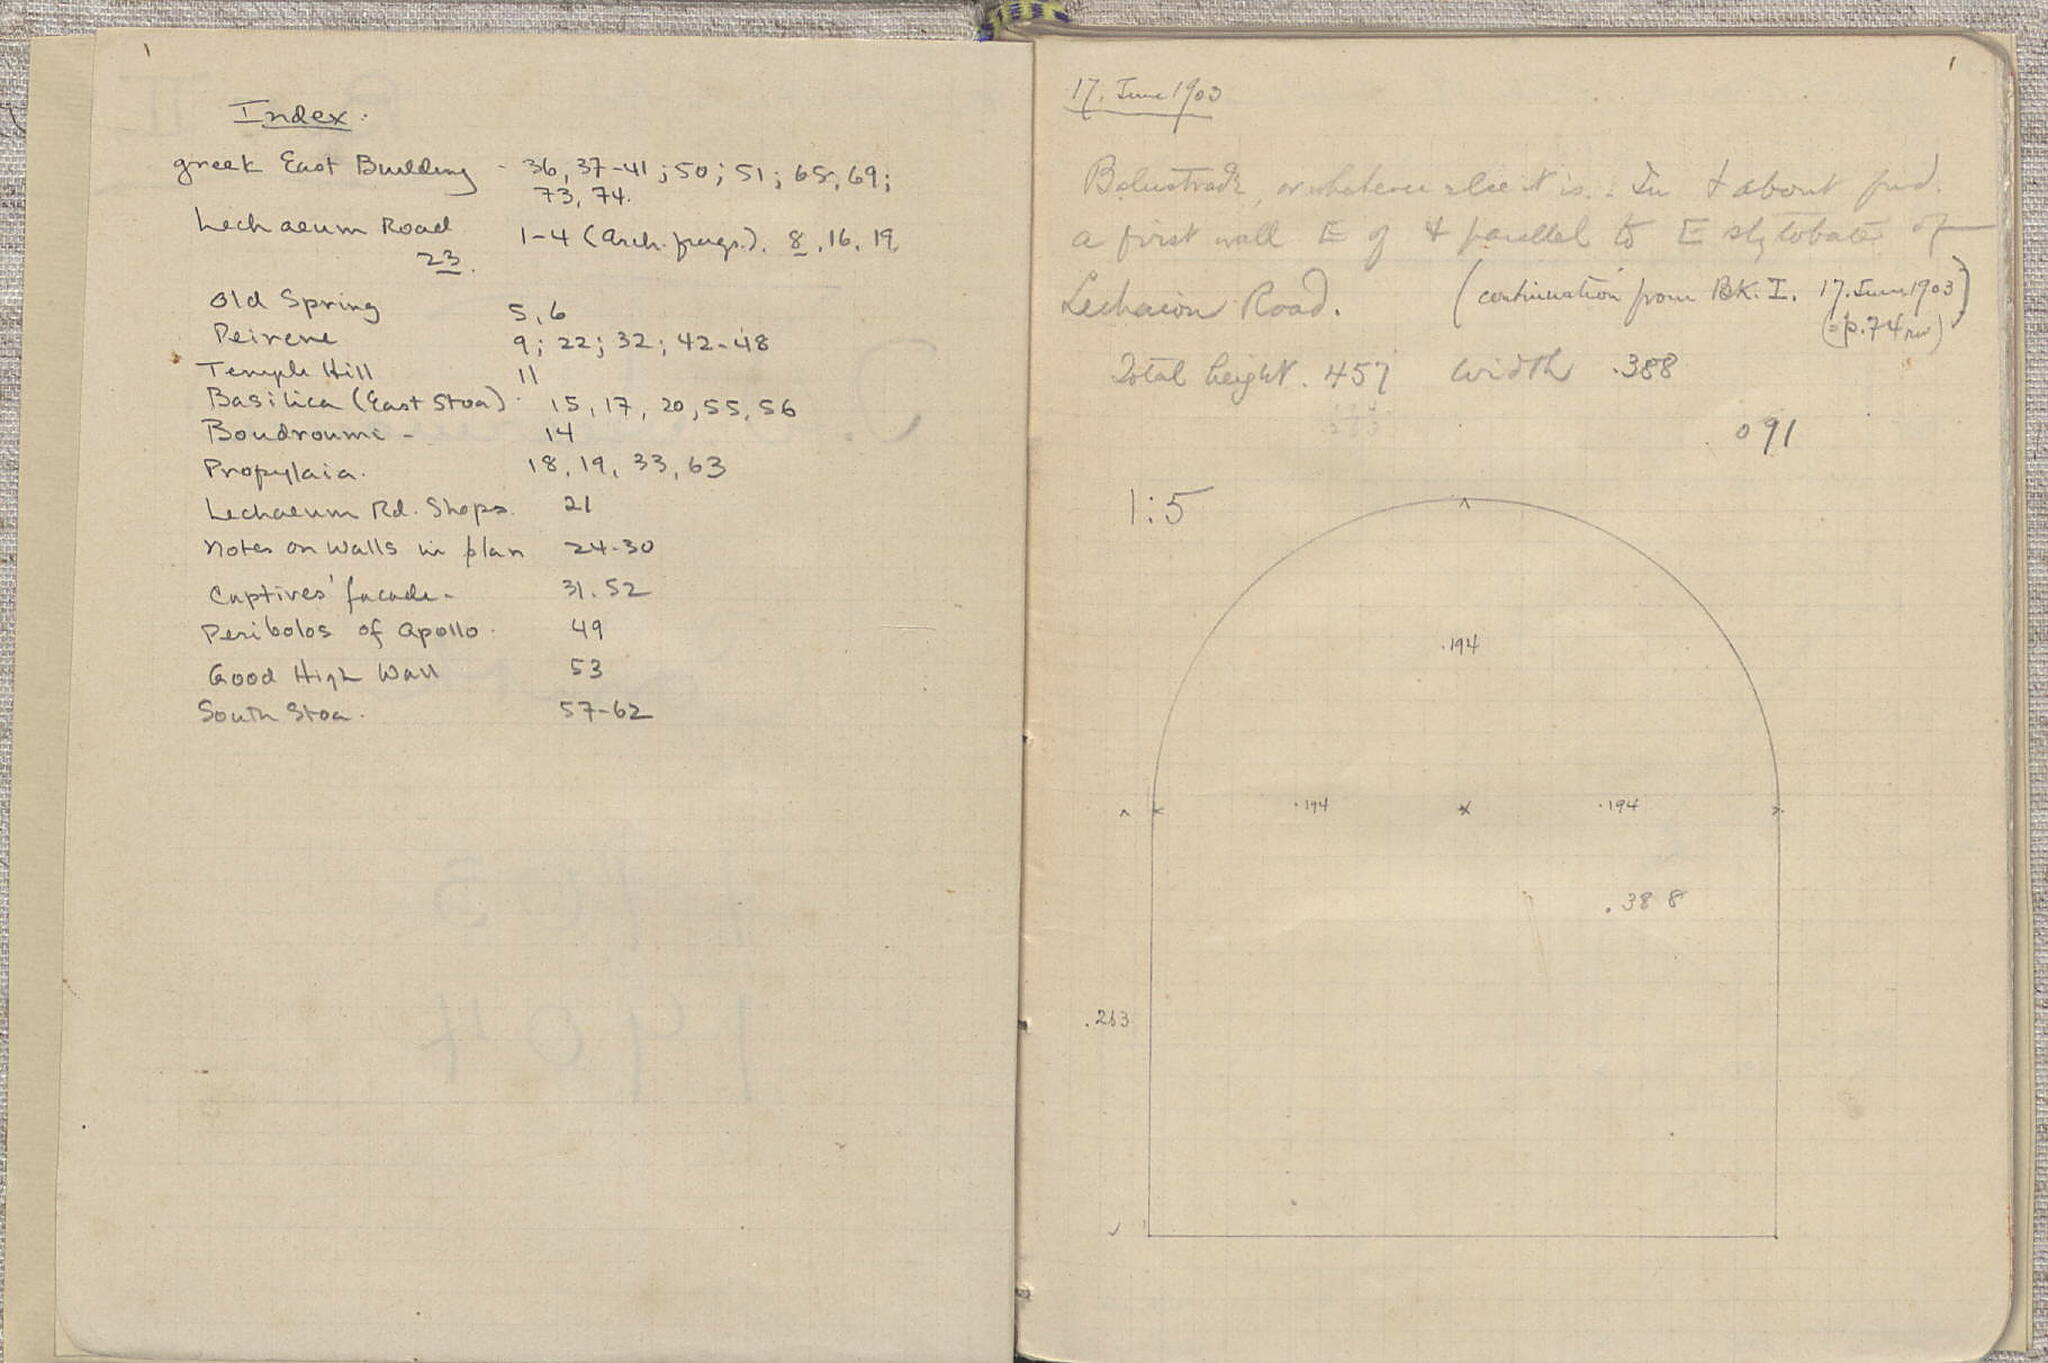 1
Index.
Greek East Building - 36, 37-41; 50; 51; 65, 69;
73, 74.
Lechaeum Road 1-4 (Arch. frags.). 8, 16, 19,
23.
Old Spring 5, 6
Peirene 9; 22; 32; 42-48
Temple Hill 11
Basilica (East Stoa) 15, 17, 20, 55, 56
Boudroumi - 14
Propylaia. 18, 19, 33, 63
Lechaeum Rd. Shops. 21
Notes on Walls in plan 24-30
Captives' facade - 31. 52
Peribolos of Apollo. 49
Good High Wall 53
South Stoa. 57-62
1
17. June 1903
Balustrade, or whatever else it is. In & about
a first wall E of & parallel to E stylobate of
Lechaion Road. (continuation from BK. I. 17. June 1903)
(=p.74)
Total height .457 width .388
.091
1:5
.194
.194 .194
.388
.263